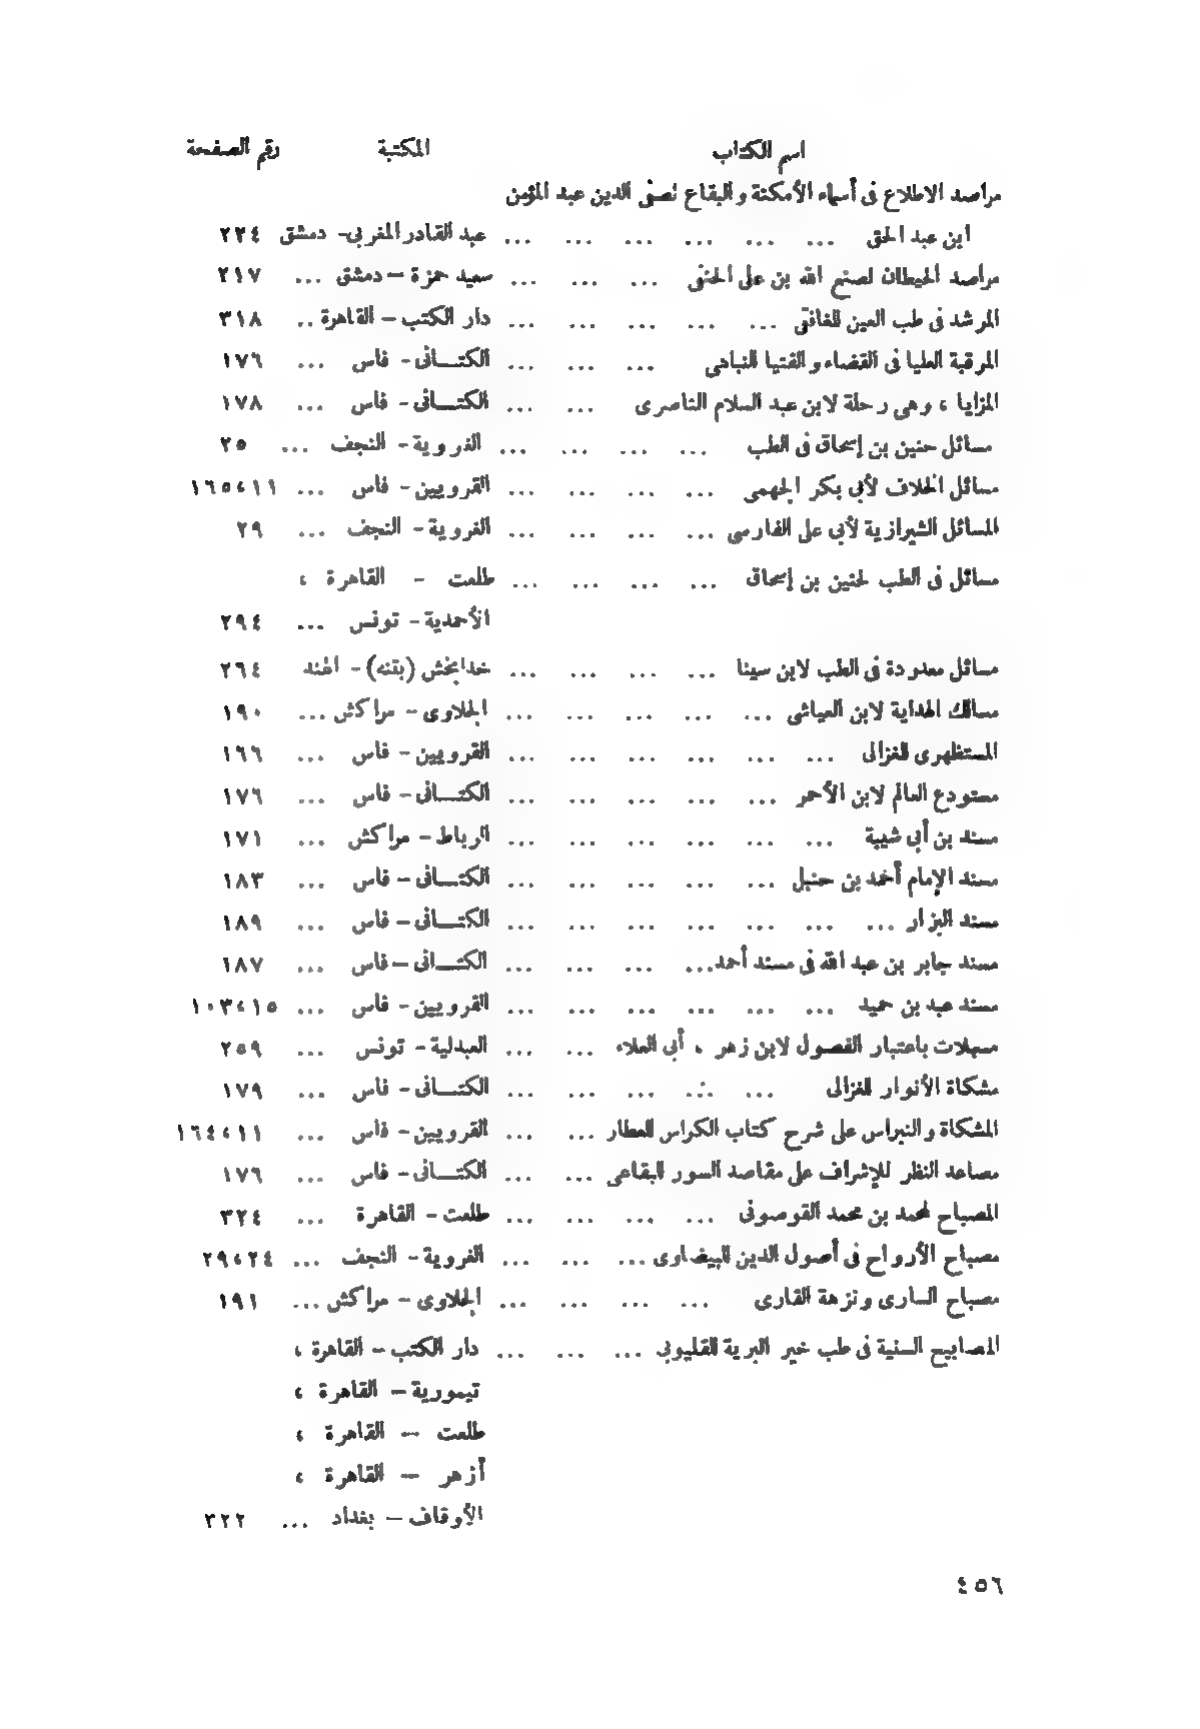 اسم الكتاب المكتبة رقم الصفحة
مراصد الاطلاع فى أسماء الأمكنة والبقاع لصفى الدين عبد المؤمن
ابن عبد الحق ... ... ... ... ... ... عبد القادر المغربى - دمشق ٢٢٤
مراصد الحيطان لصنع الله بن على الحنفى ... ... ... سعيد حمزة - دمشق ... ٢١٧
المرشد فى طب العين للغافقى ... ... ... ... ... دار الكتب - القاهرة .. ٣١٨
المرقبة العليا فى القضاء والفتيا للنباهى ... ... ... الكتانى - فاس ... ١٧٦
المزايا ، وهى رحلة لابن عبد السلام الناصرى ... ... الكتانى - فاس ... ١٧٨
مسائل حنين بن إسحاق فى الطب ... ... ... ... الغروية - النجف ... ٢٥
مسائل الخلاف لأبى بكر الجهمى ... ... ... ... القرويين - فاس ... ١١،١٦٥
المسائل الشيرازية لأبى على الفارسى ... ... ... ... الغروية - النجف ... ٢٩
مسائل فى الطب لحنين بن إسحاق ... ... ... ... طلعت - القاهرة ،
الأحمدية - تونس ... ٢٩٤
مسائل معدودة فى الطب لابن سينا ... ... ... ... خدابخش (بتنه) - الهند ٢٦٤
مسالك الهداية لابن العياشى ... ... ... ... ... الجلاوى - مراكش ... ١٩٠
المستظهرى للغزالى ... ... ... ... ... ... القرويين - فاس ... ١٦٦
مستودع العالم لابن الأحمر ... ... ... ... ... الكتانى - فاس ... ١٧٦
مسند بن أبى شيبة ... ... ... ... ... ... الرباط - مراكش ... ١٧١
مسند الإمام أحمد بن حنبل ... ... ... ... ... الكتانى - فاس ... ١٨٣
مسند البزار ... ... ... ... ... ... ... الكتانى - فاس ... ١٨٩
مسند جابر بن عبد الله فى مسند أحمد ... ... ... ... الكتانى - فاس ... ١٨٧
مسند عبد بن حميد ... ... ... ... ... ... القرويين - فاس ... ١٥،١٠٣
مسهلات باعتبار الفصول لابن زهر ، أبى العلاء ... ... العبدلية - تونس ... ٢٥٩
مشكاة الأنوار للغزالى ... ... ... ... ... الكتانى - فاس ... ١٧٩
المشكاة والنبراس على شرح كتاب الكراس للعطار ... ... القرويين - فاس ... ١١،١٦٤
مصاعد النظر للإشراف على مقاصد السور للبقاعى ... ... الكتانى - فاس ... ١٧٦
المصباح لمحمد بن محمد القوصونى ... ... ... ... طلعت - القاهرة ... ٣٢٤
مصباح الأرواح فى أصول الدين للبيضاوى ... ... ... الغروية - النجف ... ٢٤،٢٩
مصباح السارى ونزهة القارى ... ... ... ... الجلاوى - مراكش ... ١٩١
المصابيح السنية فى طب خير البرية للقليوبى ... ... ... دار الكتب - القاهرة ،
تيمورية - القاهرة ،
طلعت - القاهرة ،
أزهر - القاهرة ،
الأوقاف - بغداد ... ٣٢٢
٤٥٦